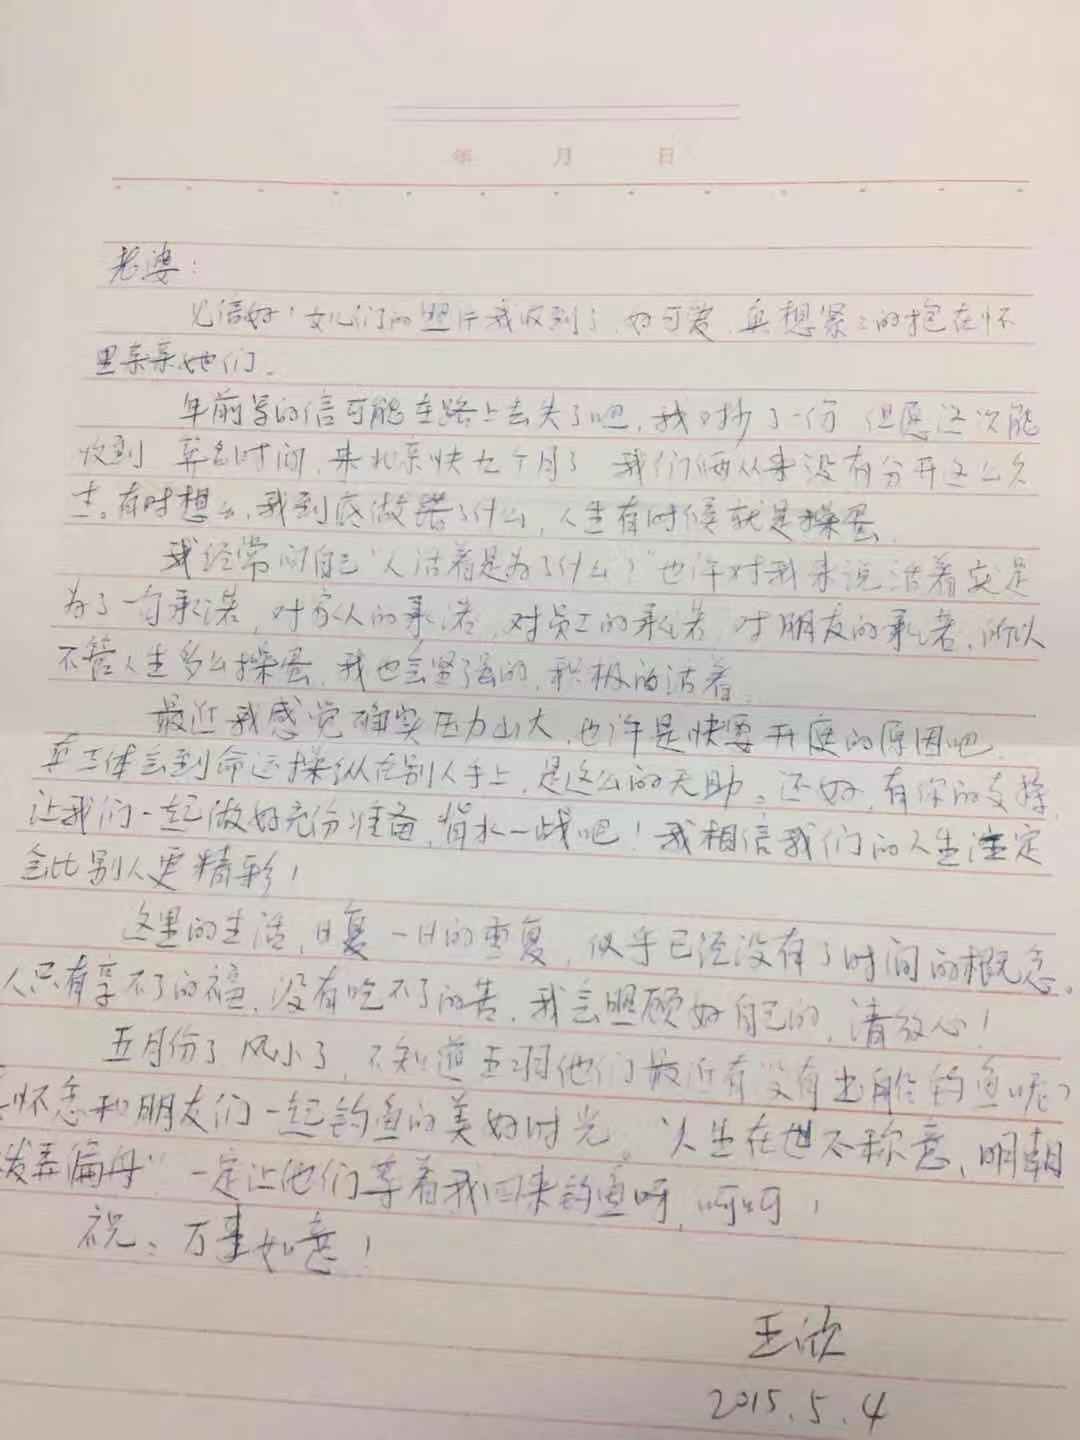 年 月 日
老婆：
见信好！女儿们的照片我收到了，好可爱，真想紧紧的抱在怀
里亲亲她们。
年前写的信可能在路上丢失了吧，我又抄了一份，但愿这次能
收到。算起时间，来北京快九个月了，我们俩从来没有分开这么久
过。有时想想，我到底做错了什么，人生有时候就是操蛋。
我经常问自己“人活着是为了什么？”也许对我来说活着就是
为了一句承诺，对家人的承诺，对员工的承诺，对朋友的承诺，所以
不管人生多么操蛋，我也会坚强的，积极的活着。
最近我感觉确实压力山大，也许是快要开庭的原因吧，
体会到命运操纵在别人手上，是这么的无助。还好，有你的支持，
让我们一起做好充份准备，背水一战吧！我相信我们的人生注定
会比别人更精彩！
这里的生活，日复一日的重复，似乎已经没有了时间的概念。
人只有享不了的福，没有吃不了的苦，我会照顾好自己的，请放心！
五月份了，风小了，不知道他们最近有没有出船钓鱼呢？
怀念和朋友们一起钓鱼的美好时光。“人生在世不称意，明朝
弄扁舟”一定让他们等着我回来钓鱼呀，呵呵！
祝：万事如意！
王欣
2015.5.4